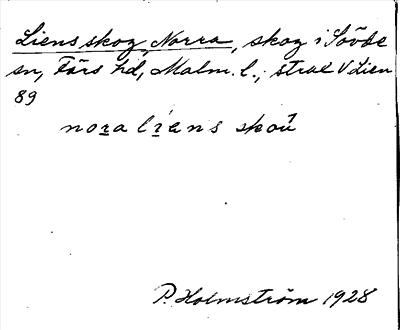 Liens skog, Norra, skog i Sövde
sn, Färs hd, Malm. l.; strax V Lien
89
nora liens skoů
P. Holmström 1928